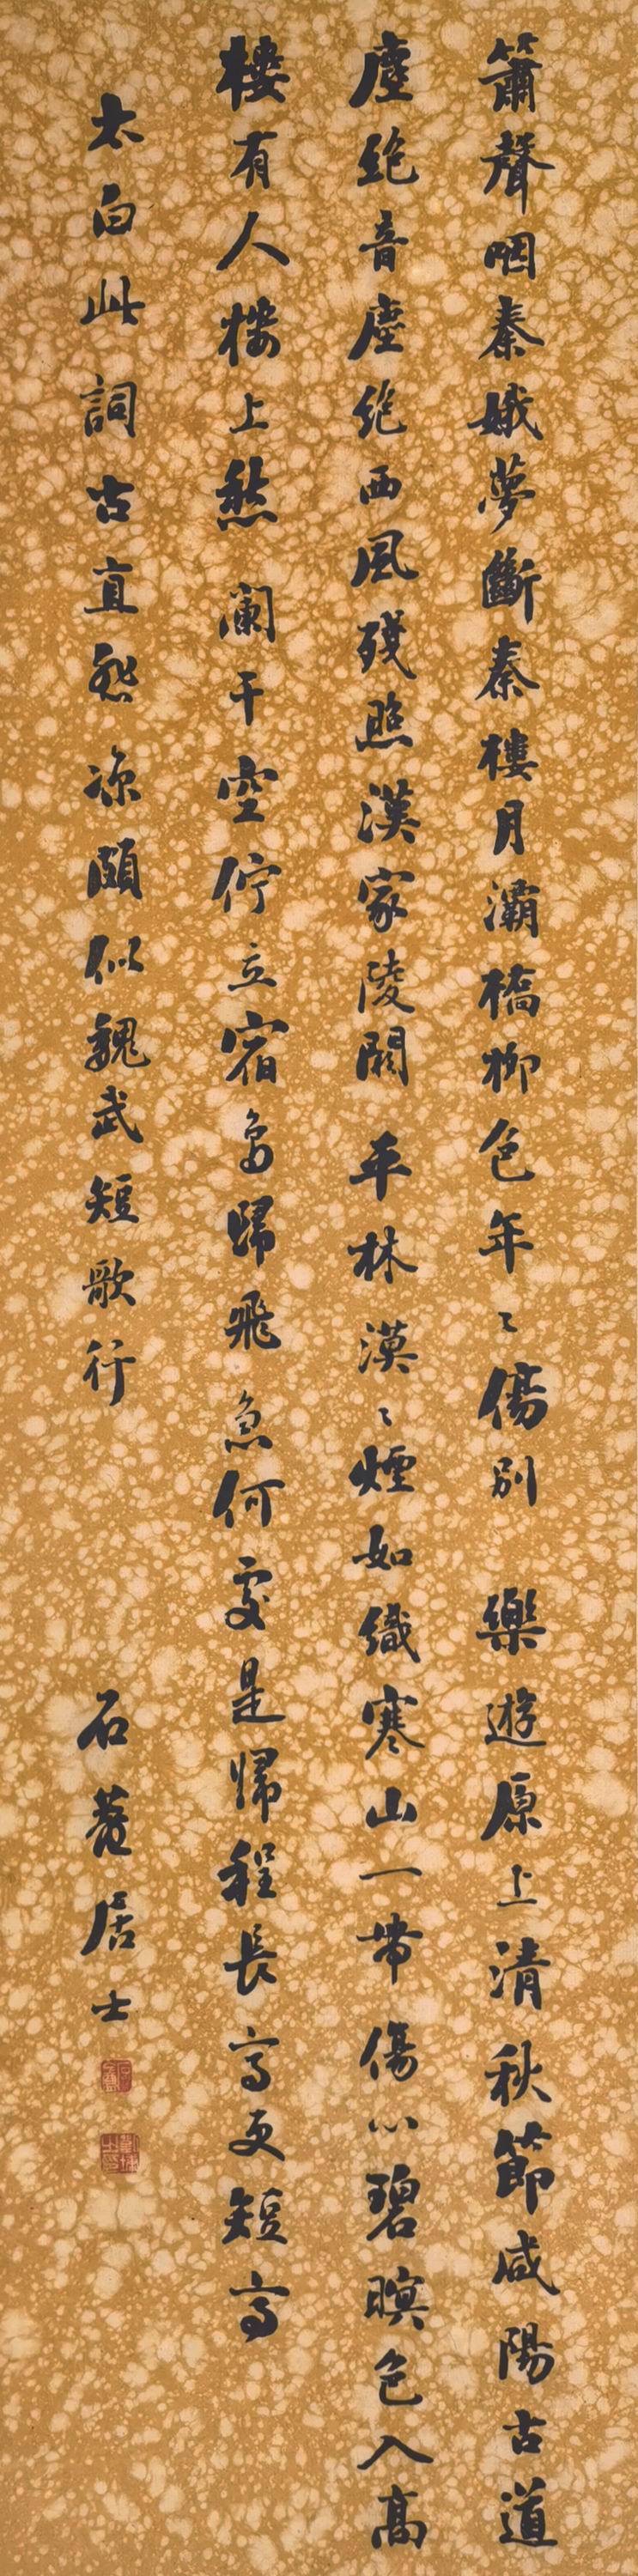 簫聲咽秦娥夢斷秦樓月灞橋柳色年〻傷別 樂遊原上清秋節咸陽古道
塵絶音塵絶西風殘照漢家陵闕 平林漠〻煙如織寒山一帶傷心碧暝色入高
樓有人樓上愁 闌干空佇立宿鳥歸飛急何處是歸程長亭更短亭
太白此詞古直悲涼頗似魏武短歌行 石菴居士
石菴
劉墉之印